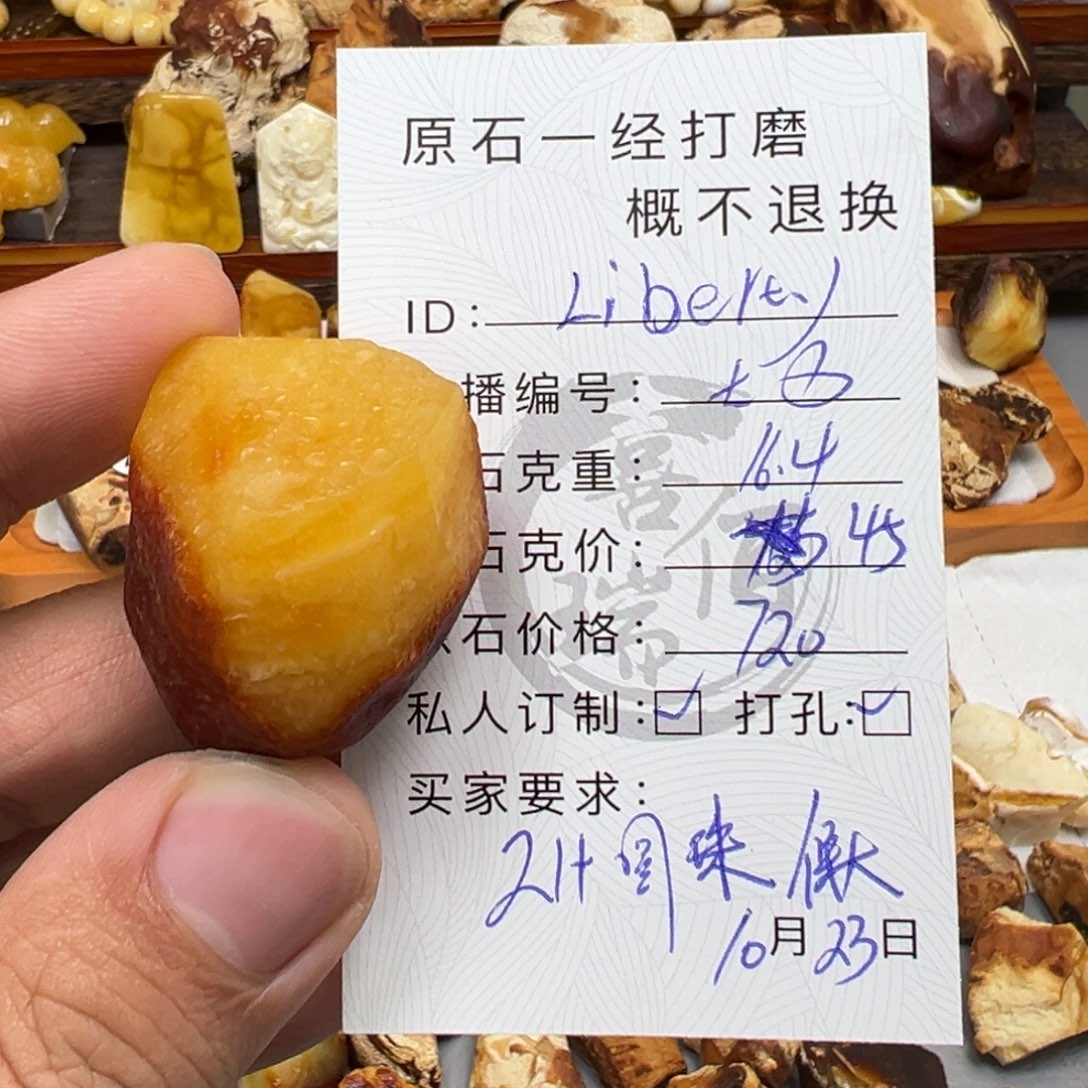 原石一经打磨
概不退换
ID: Liberty
播编号:
石克重: 16.4
石克价: 45
石价格: 720
私人订制: ☑ 打孔: ☑
买家要求:
圆珠
10月23日
喜价
瑞